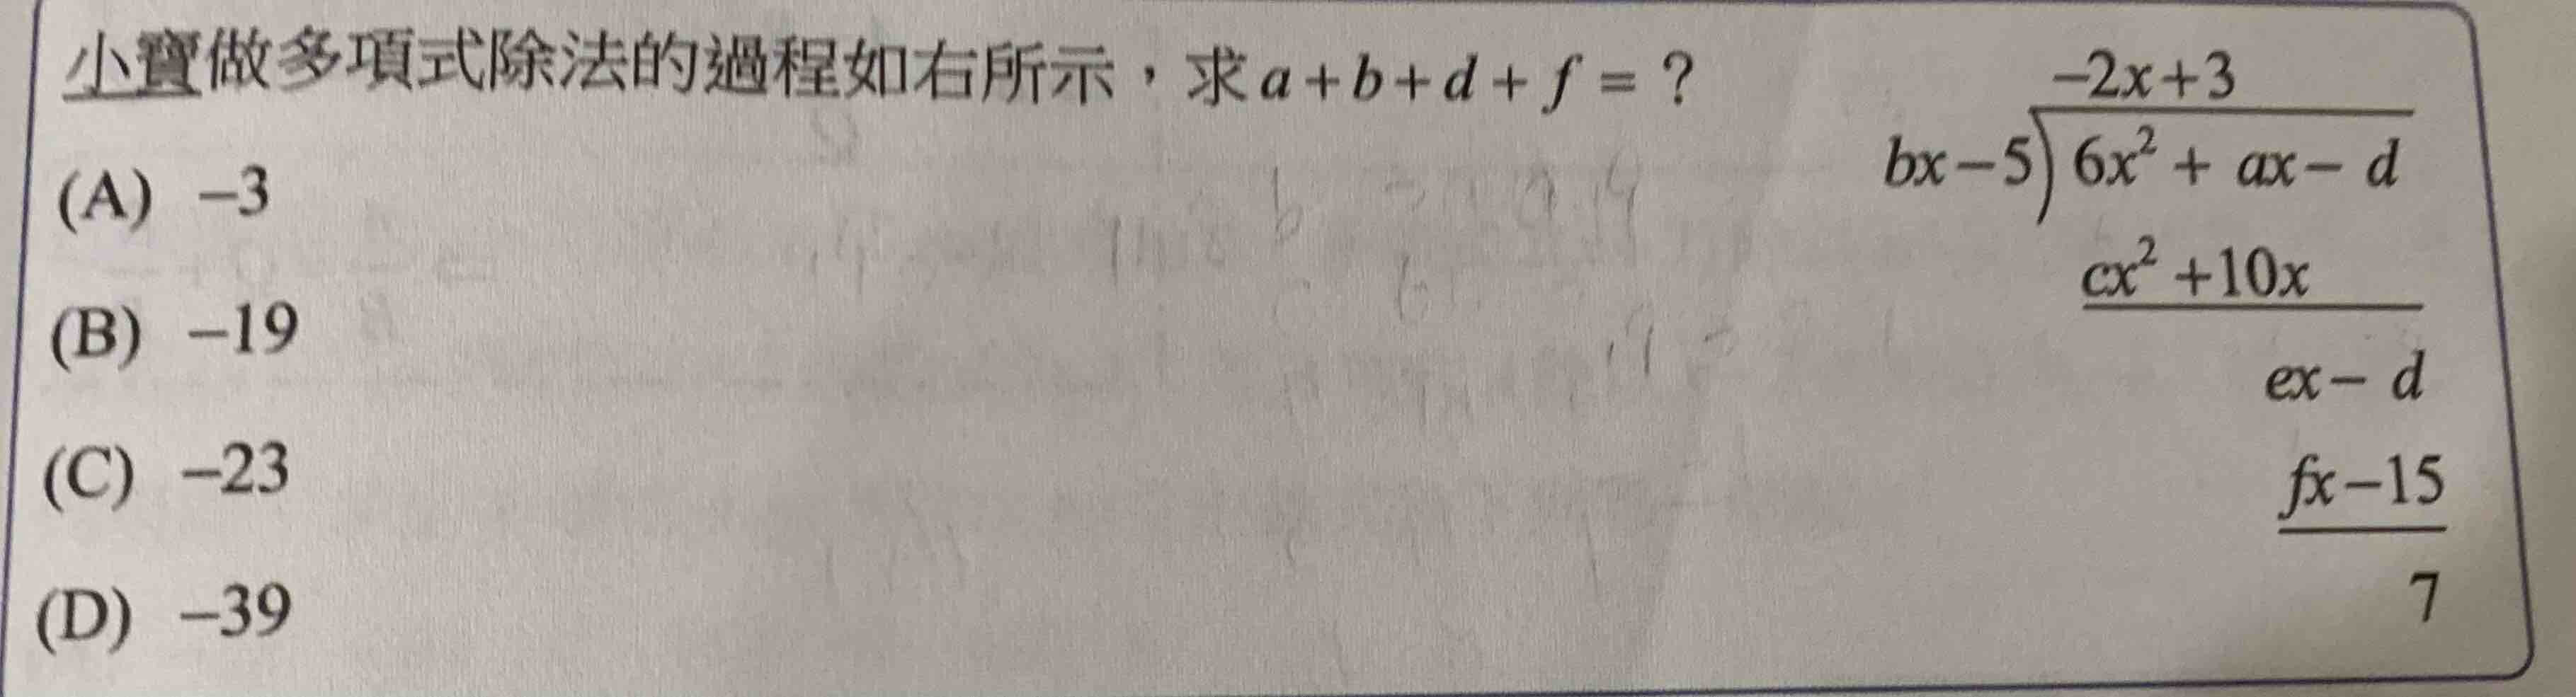 小寶做多項式除法的過程如右所示，求a+b+d+f = ?
(A) −3
(B) −19
(C) −23
(D) −39
−2x+3
bx−5)6x²+ ax− d
cx²+10x
ex− d
fx−15
7